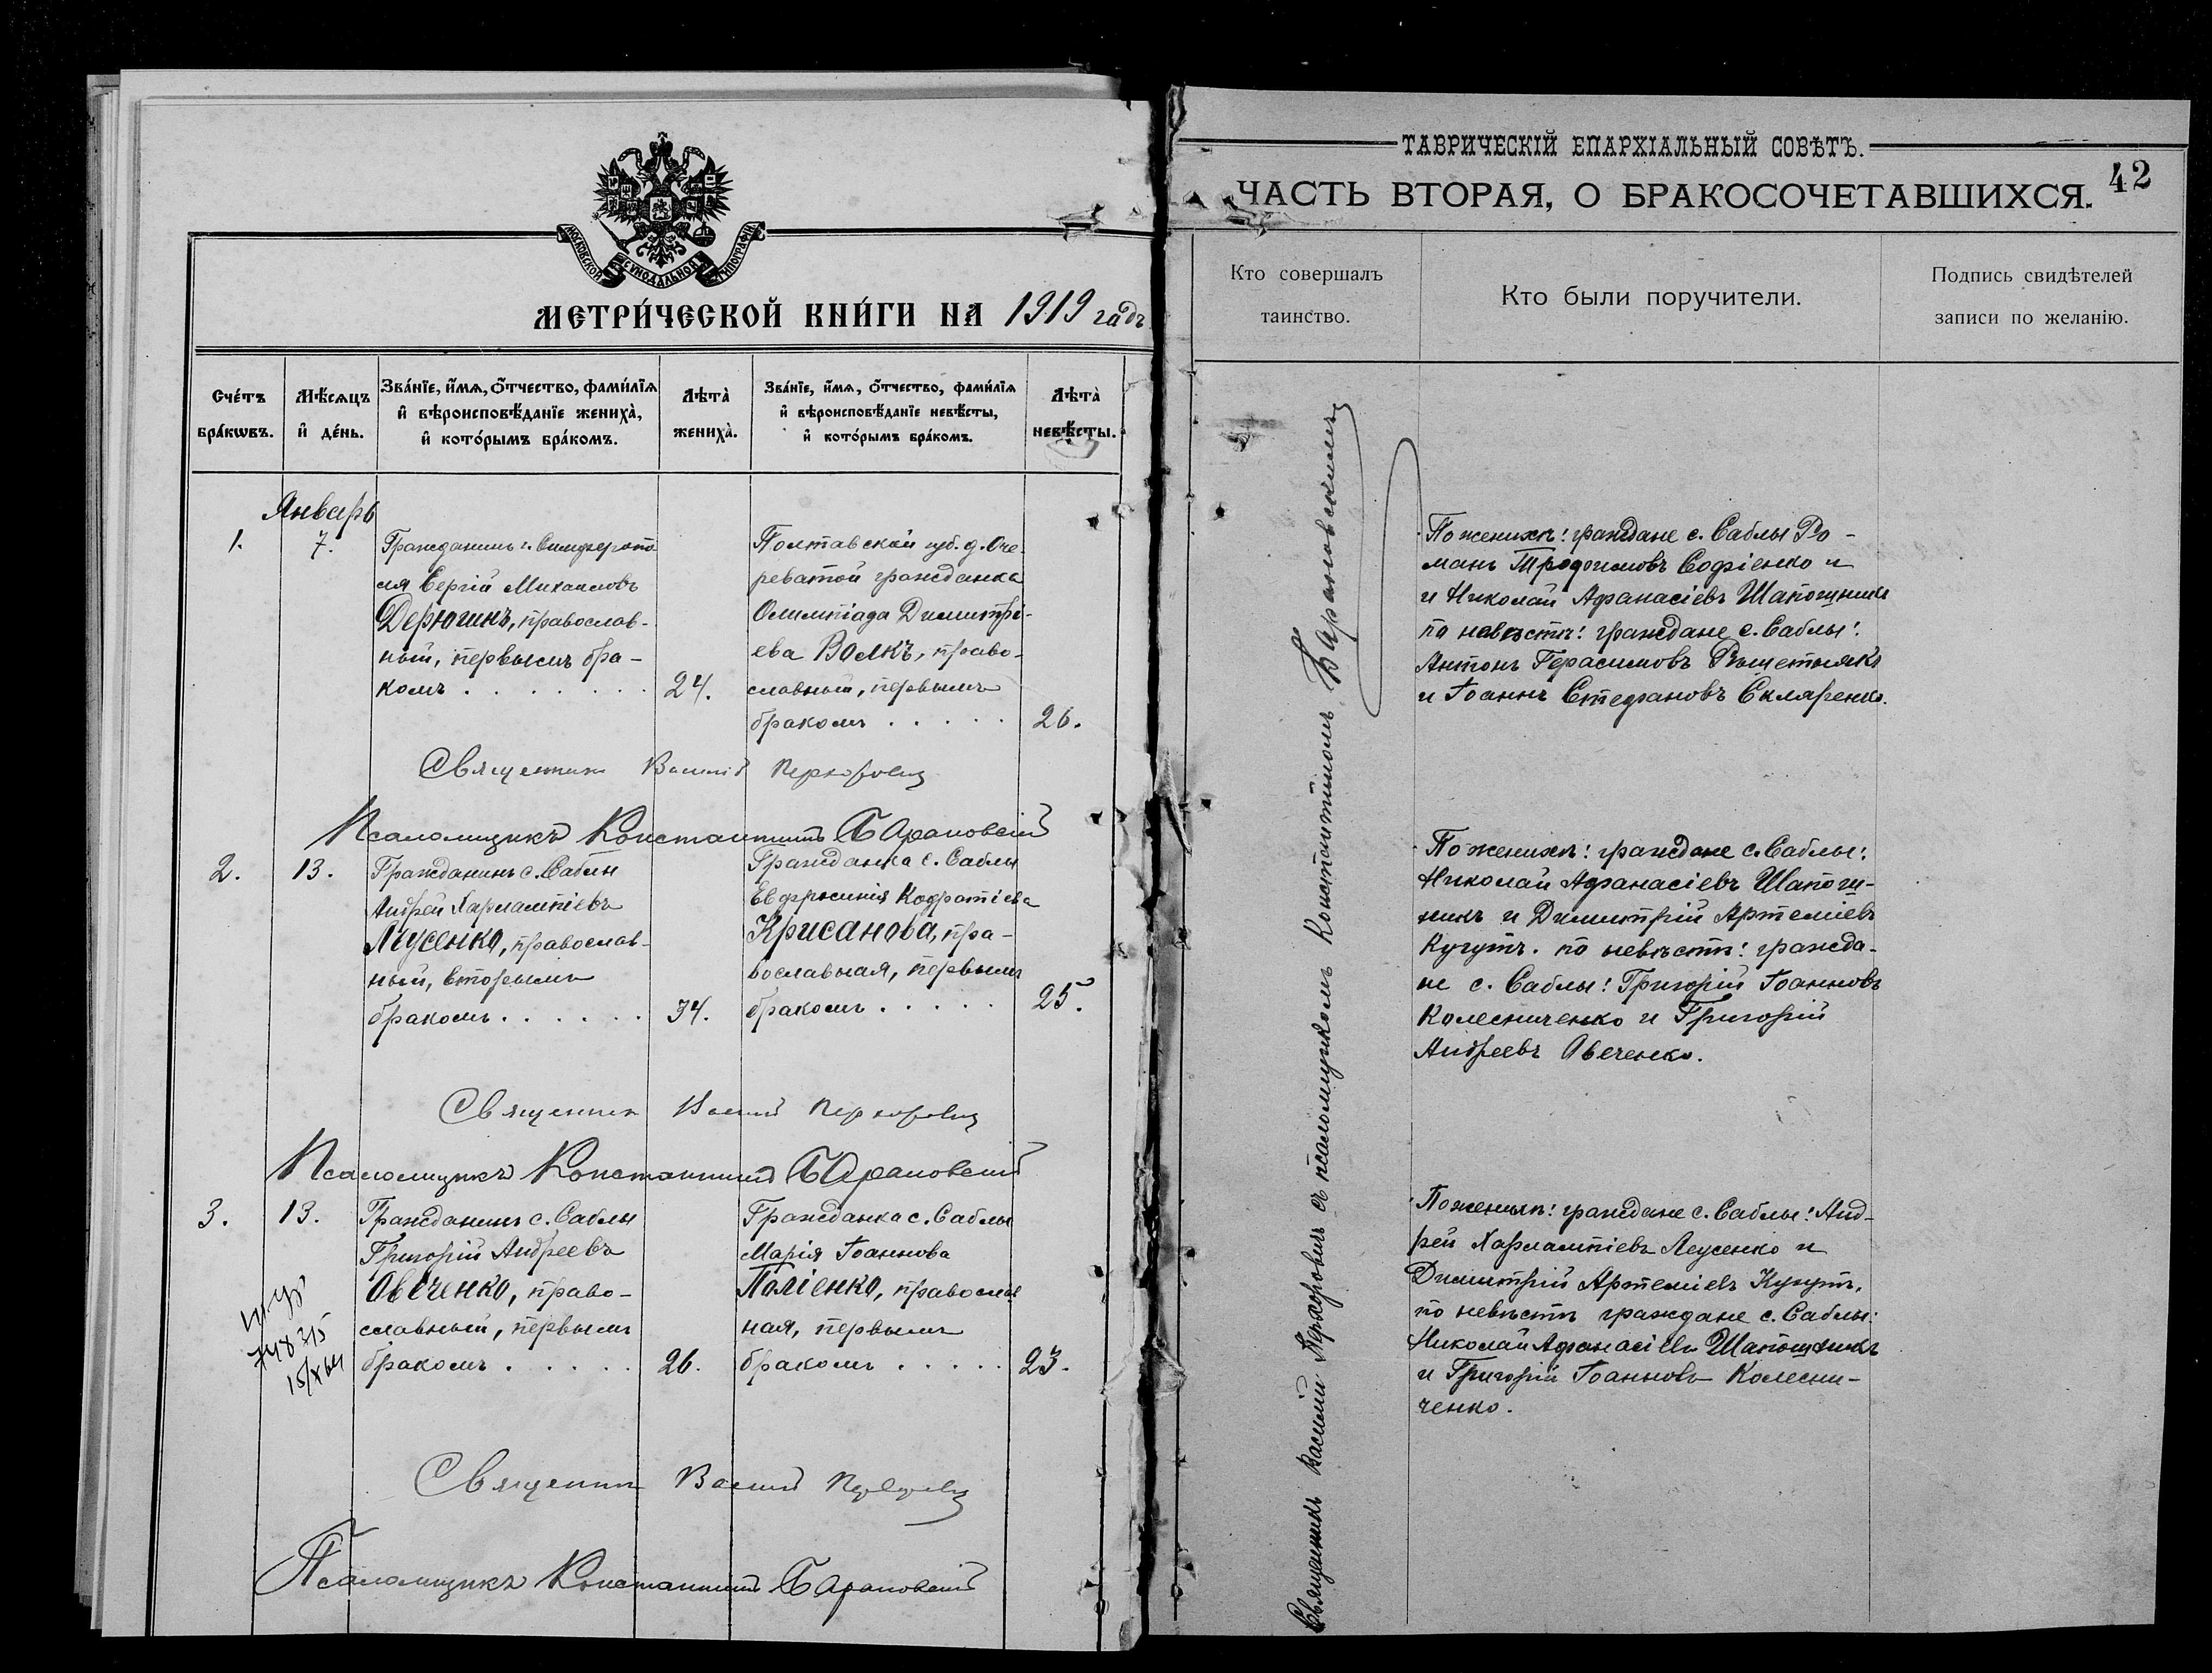 МОСКОВСКОЙ СѴНОДАЛЬНОЙ ТИПОГРАФІИ
МЕТРИ́ЧЕСКОЙ КНИ́ГИ НА 1919 га́дъ
Сче́тъ бра́кѡвъ.
Мѣ́сѧцъ и҆ де́нь.
Зва́нїе, и҆́мѧ, ѻ҆́тчество, фами́лїѧ
и҆ вѣроисповѣ́данїе жениха̀,
и҆ кото́рымъ бра́комъ.
Лѣта̀ жениха̀.
Зва́нїе, и҆́мѧ, ѻ҆́тчество, фами́лїѧ
и҆ вѣроисповѣ́данїе невѣ́сты,
и҆ кото́рымъ бра́комъ.
Лѣта̀ невѣ́сты.
Январь
1.
7.
Гражданинъ г. Симферопо
ля Сергій Михаиловъ
Дерюгинъ, православ-
ный, первымъ бра-
комъ . . . . . . . .
24.
Полтавской губ. д. Оче-
реватой гражданка
Олимпіада Димитрі-
ева Волкъ, право-
славный, первымъ
бракомъ . . . . .
26.
Священникъ Василій
Псаломщикъ Константинъ Барановскій
2.
13.
Гражданинъ с. Саблы
Андрей Харлампіевъ
Леусенко, православ-
ный, вторымъ
бракомъ . . . . . .
34.
Гражданка с. Саблы
Евфросинія Кодратіева
Крисанова, пра-
вославная, первымъ
бракомъ . . . . .
25.
Священникъ Василій
Псаломщикъ Константинъ Барановскій
3.
13.
Гражданинъ с. Саблы
Григорій Андреевъ
Овеченко, право-
славный, первымъ
бракомъ . . . . .
26.
Гражданка с. Саблы
Марія Іоаннова
Паліенко, православ
ная, первымъ
бракомъ . . . . .
23.
15/X 64
Священникъ Василій
Псаломщикъ Константинъ Барановскій
ТАВРИЧЕСКІЙ ЕПАРХІАЛЬНЫЙ СОВѢТЪ.
ЧАСТЬ ВТОРАЯ, О БРАКОСОЧЕТАВШИХСЯ.
42
Кто совершалъ
таинство.
Кто были поручители.
Подпись свидѣтелей
записи по желанію.
Священникъ Василій съ псаломщикомъ Константиномъ Барановскимъ
По женихѣ: граждане с. Саблы Ро-
манъ Трофимовъ Софіенко и
и Николай Афанасіевъ Шапошникъ
по невѣстѣ: граждане с. Саблы:
Антонъ Герасимовъ Решетнякъ
и Іоаннъ Стефановъ Скляренко.
По женихѣ: граждане с. Саблы:
Николай Афанасіевъ Шапош-
никъ и Димитрій Артеміевъ
Кугутъ. по невѣстѣ: гражда-
не с. Саблы: Григорій Іоанновъ
Колесниченко и Григорій
Андреевъ Овеченко.
По женихѣ: граждане с. Саблы: Анд-
рей Харлампіевъ Леусенко и
Димитрій Артеміевъ Кугутъ,
по невѣстѣ граждане с. Саблы:
Николай Афанасіевъ Шапошникъ
и Григорій Іоанновъ Колесни-
ченко.